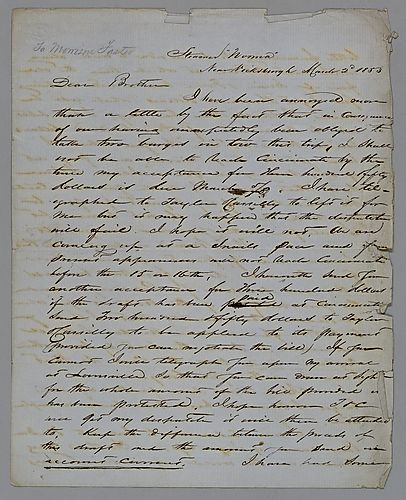 To Morrison Foster
Steamer "
Near Vicksburgh March 2d 1853
Dear Brother
I have been annoyed more
than a little by the fact that in consequence
of our having unexpectedly been obliged to
take two barges in tow this trip, I shall
not be able to reach Cincinnati by the
time my acceptance for Three hundred fifty
dollars is due March 7/10. I have tel-
egraphed to Taylor & Odiorne to lift it for
me but it may happen that the despatch
will fail. I hope it will not. We are
coming up at a Snails pace and for
present appearances will not reach Cincinnati
before the 15 or 16th. I herewith send you
another acceptance for Three hundred dollars
if the draft has been paid at Cincinnati
send Two hundred fifty dollars to Taylor
& Odiorne to be applied to its payment
(provided you can negotiate the bill) If you
cannot I will telegraph you upon my arrival
at Louisville so that you can draw at sight
for the whole amount of the bill provided it
has been protested. I hope however T & O
will get my despatch it will then be attended
to. Keep the difference between the proceeds of
this draft and the amount you send in
account current. I have had some